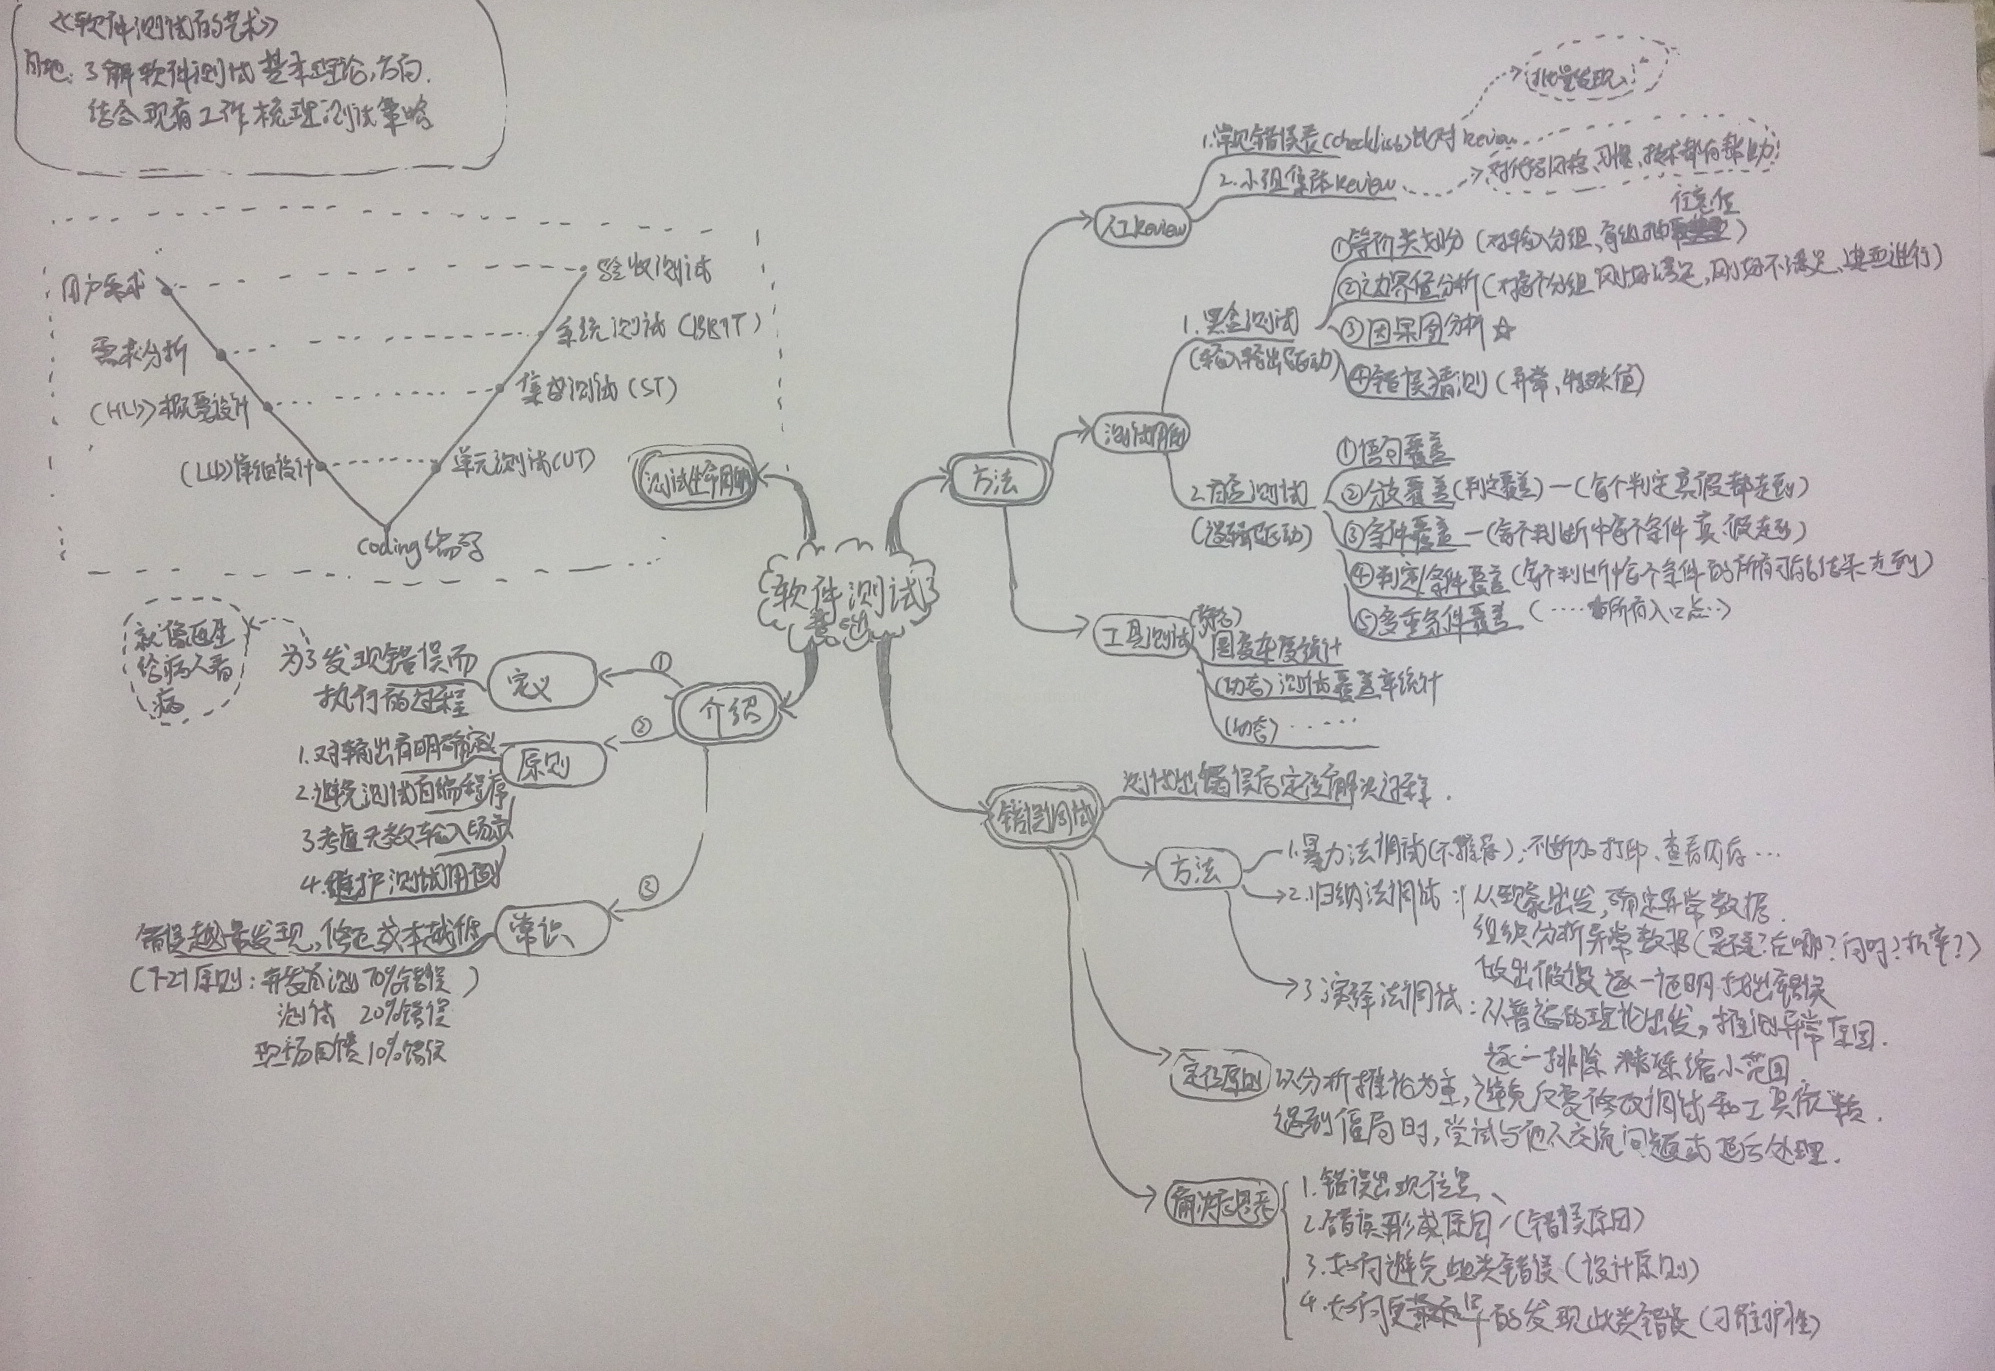 《软件测试的艺术》
目地：了解软件测试基本理论,方向.
结合现有工作梳理测试策略
用户需求
验收测试
需求分析
系统测试(BBIT)
(HLD)概要设计
集成测试(ST)
(LLD)详细设计
单元测试(UT)
coding编写
测试生命周期
软件测试
基础
方法
人工Review
1.常见错误表(checklist)比对Review
批量发现
2.小组集体Review
对代码风格、习惯、技术都有帮助!
测试用例
1.黑盒测试
(输入输出驱动)
任意值
①等价类划分 (对输入分组、每组抽)
②边界值分析(对每个分组 刚好满足,刚好不满足、典型进行)
③因果图分析 ☆
④错误猜测 (异常、特殊值)
2.白盒测试
(逻辑驱动)
①语句覆盖
②分支覆盖(判定覆盖)—(每个判定真假都走到)
③条件覆盖—(每个判断中每个条件 真、假走到)
④判定/条件覆盖(每个判断中每个条件的所有可能结果走到)
⑤多重条件覆盖 (……所有入口点…)
工具测试
(静态)
圈复杂度统计
(动态)测试覆盖率统计
(动态) ……
介绍
①
定义
为了发现错误而
执行的过程
就像医生
给病人看
病
②
原则
1.对输出有明确定义
2.避免测试自编程序
3.考虑无数输入场景
4.维护测试用例
③
常识
错误越早发现,修正成本越低
(7-2-1原则：开发自测70%错误)
测试 20%错误
现场回馈10%错误
错误调试
测试出错误后定位解决过程.
方法
1.暴力法调试(不推荐)：不断加打印、查看内存…
2.归纳法调试：从现象出发,确定异常数据.
组织分析异常数据(是谁?在哪?何时?概率?)
做出假设逐一证明找出错误
3.演绎法调试：从普遍的理论出发,推测异常原因.
逐一排除 精确缩小范围
定位原则
以分析推论为主,避免反复修改调试和工具依赖.
遇到僵局时,尝试与他人交流问题或延后处理.
痛决后思考
1.错误出现位置、
2.错误形成原因 (错误原因)
3.如何避免此类错误(设计原则)
4.如何更早的发现此类错误(可维护性)